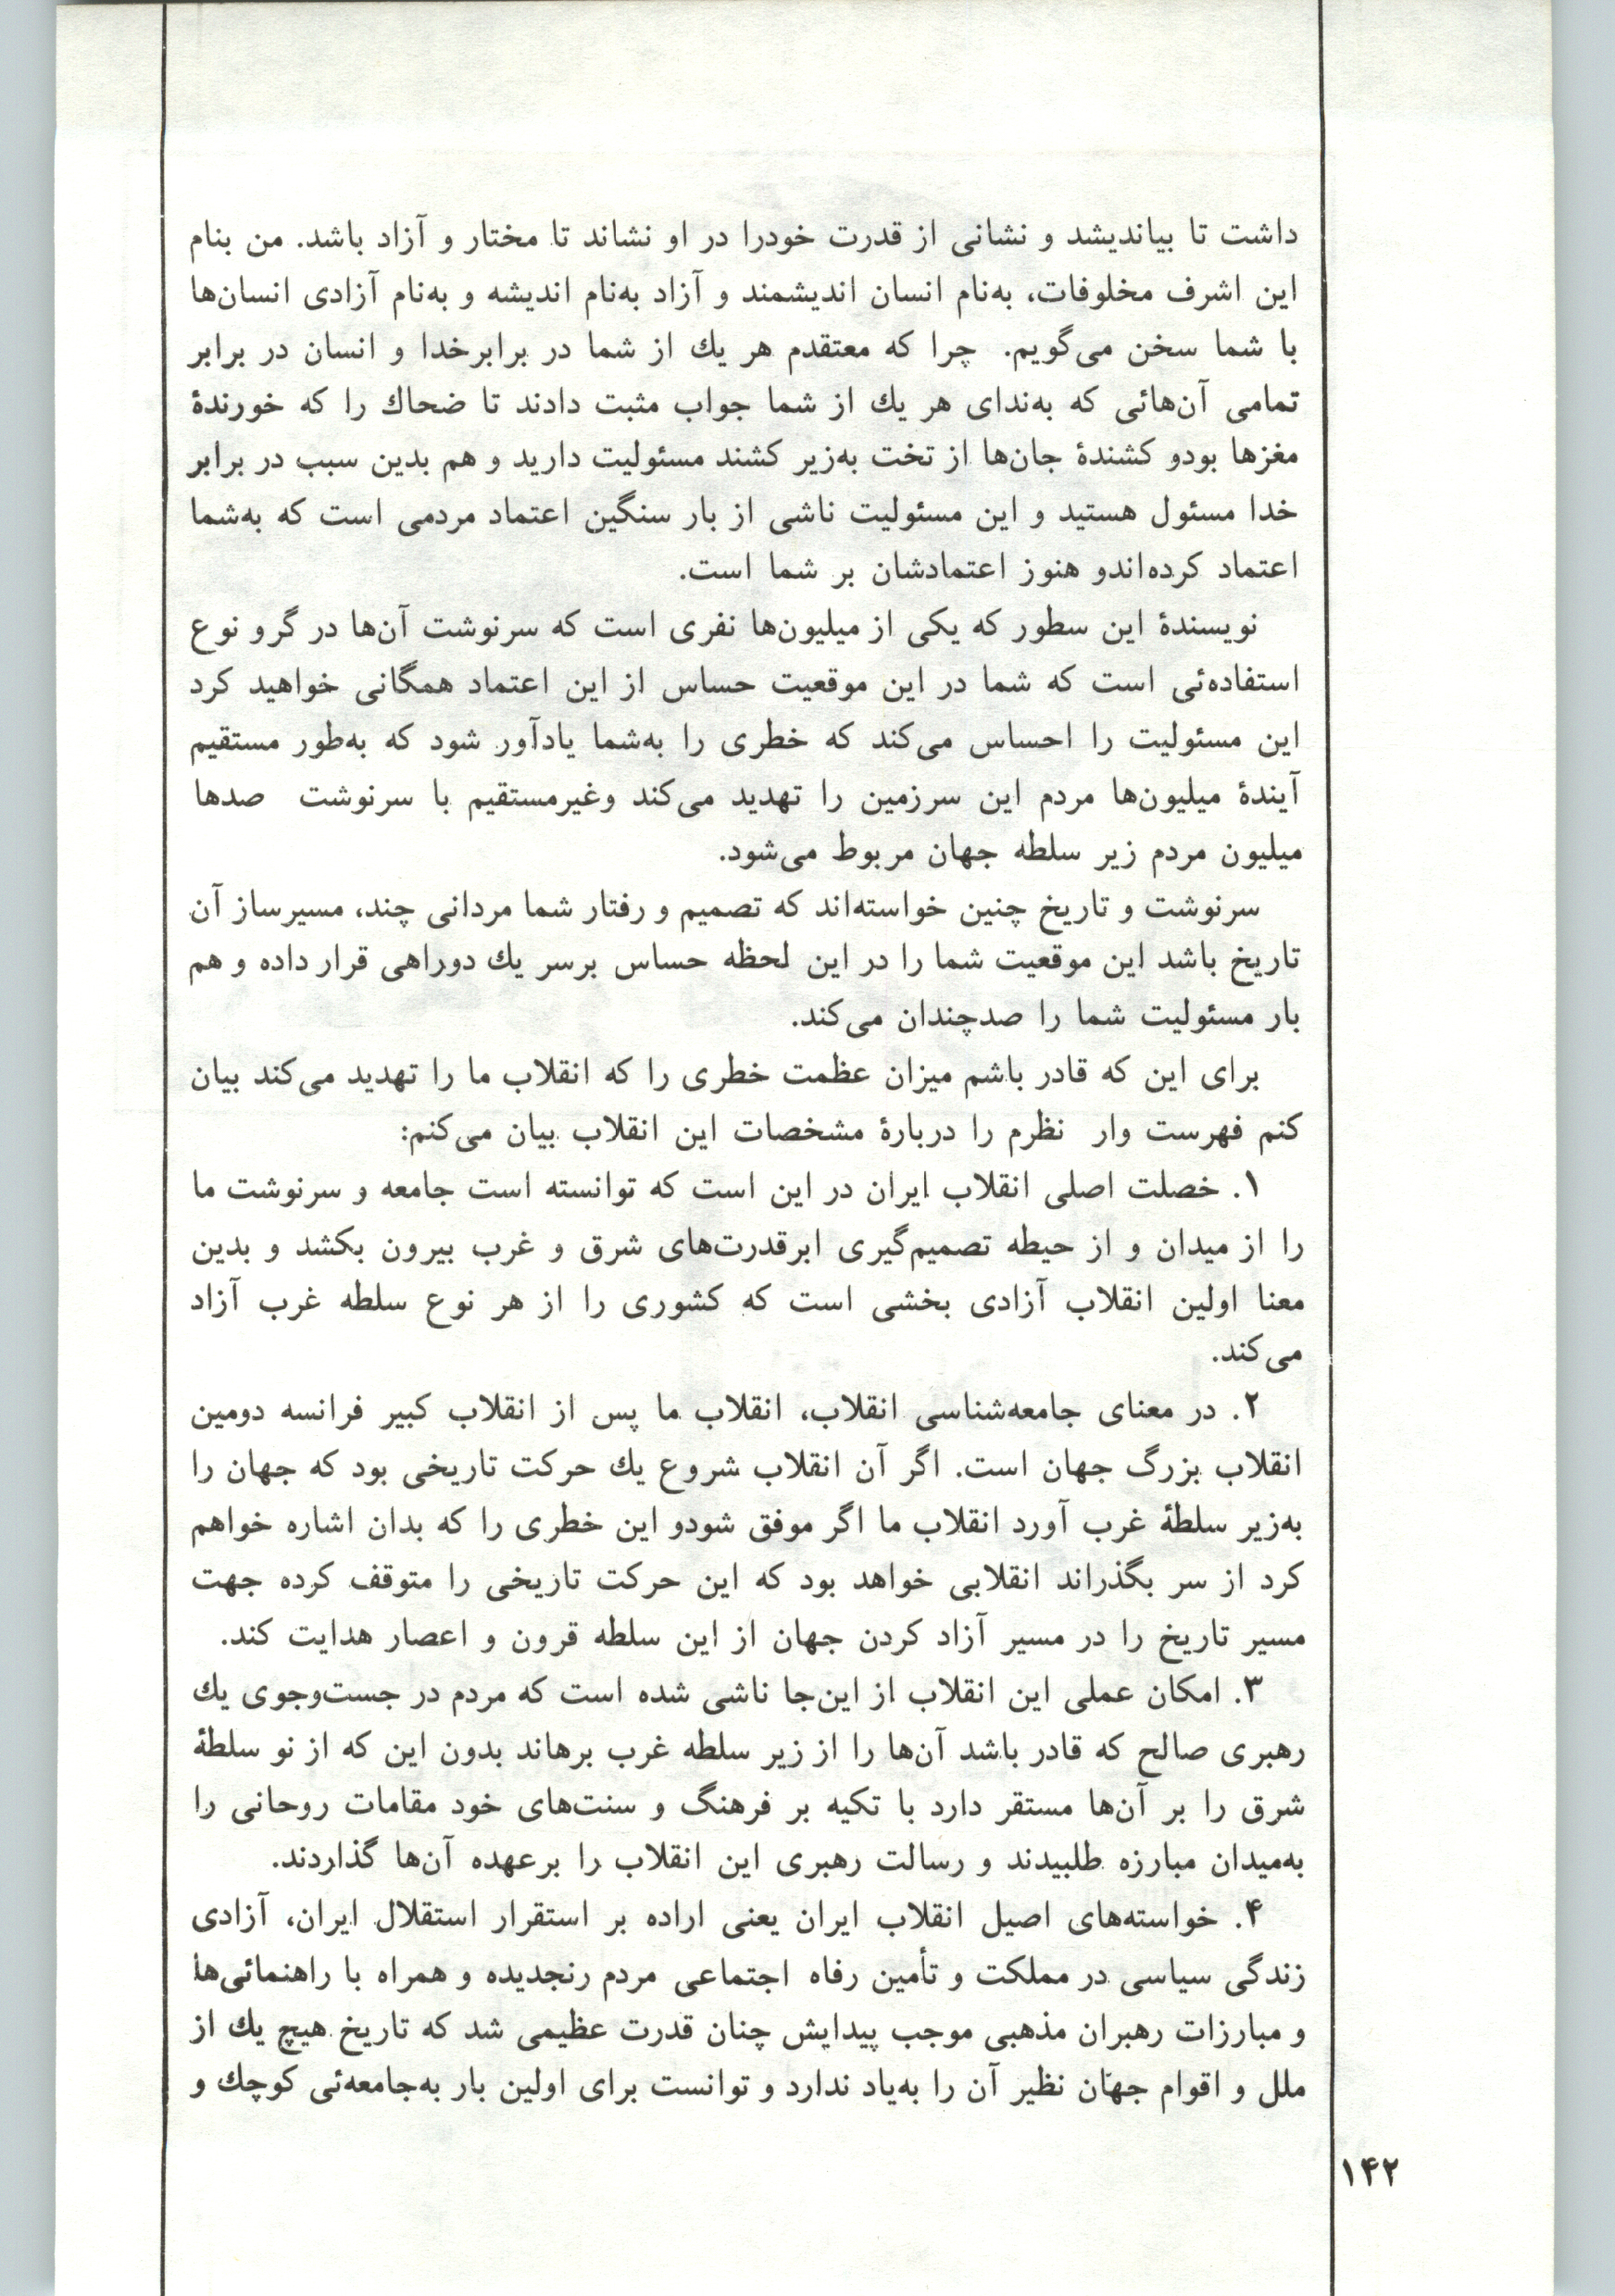 داشت تا بیاندیشد و نشانی از قدرت خودرا در او نشاند تا مختار و آزاد باشد. من بنام
این اشرف مخلوفات، به‌نام انسان اندیشمند و آزاد به‌نام اندیشه و به‌نام آزادی انسان‌ها
با شما سخن می‌گویم. چرا که معتقدم هر یك از شما در برابرخدا و انسان در برابر
تمامی آن‌هائی که به‌ندای هر یك از شما جواب مثبت دادند تا ضحاك را که خورندهٔ
مغزها بودو کشندهٔ جان‌ها از تخت به‌زیر کشند مسئولیت دارید و هم بدین سبب در برابر
خدا مسئول هستید و این مسئولیت ناشی از بار سنگین اعتماد مردمی است که به‌شما
اعتماد کرده‌اندو هنوز اعتمادشان بر شما است.
نویسندهٔ این سطور که یکی از میلیون‌ها نفری است که سرنوشت آن‌ها در گرو نوع
استفاده‌ئی است که شما در این موقعیت حساس از این اعتماد همگانی خواهید کرد
این مسئولیت را احساس می‌کند که خطری را به‌شما یادآور شود که به‌طور مستقیم
آیندهٔ میلیون‌ها مردم این سرزمین را تهدید می‌کند وغیرمستقیم با سرنوشت صدها
میلیون مردم زیر سلطه جهان مربوط می‌شود.
سرنوشت و تاریخ چنین خواسته‌اند که تصمیم و رفتار شما مردانی چند، مسیرساز آن
تاریخ باشد این موقعیت شما را در این لحظه حساس برسر یك دوراهی قرار داده و هم
بار مسئولیت شما را صدچندان می‌کند.
برای این که قادر باشم میزان عظمت خطری را که انقلاب ما را تهدید می‌کند بیان
کنم فهرست وار نظرم را دربارهٔ مشخصات این انقلاب بیان می‌کنم:
۱. خصلت اصلی انقلاب ایران در این است که توانسته است جامعه و سرنوشت ما
را از میدان و از حیطه تصمیم‌گیری ابرقدرت‌های شرق و غرب بیرون بکشد و بدین
معنا اولین انقلاب آزادی بخشی است که کشوری را از هر نوع سلطه غرب آزاد
می‌کند.
۲. در معنای جامعه‌شناسی انقلاب، انقلاب ما پس از انقلاب کبیر فرانسه دومین
انقلاب بزرگ جهان است. اگر آن انقلاب شروع یك حرکت تاریخی بود که جهان را
به‌زیر سلطهٔ غرب آورد انقلاب ما اگر موفق شودو این خطری را که بدان اشاره خواهم
کرد از سر بگذراند انقلابی خواهد بود که این حرکت تاریخی را متوقف کرده جهت
مسیر تاریخ را در مسیر آزاد کردن جهان از این سلطه قرون و اعصار هدایت کند.
۳. امکان عملی این انقلاب از این‌جا ناشی شده است که مردم در جست‌وجوی یك
رهبری صالح که قادر باشد آن‌ها را از زیر سلطه غرب برهاند بدون این که از نو سلطهٔ
شرق را بر آن‌ها مستقر دارد با تکیه بر فرهنگ و سنت‌های خود مقامات روحانی را
به‌میدان مبارزه طلبیدند و رسالت رهبری این انقلاب را برعهده آن‌ها گذاردند.
۴. خواسته‌های اصیل انقلاب ایران یعنی اراده بر استقرار استقلال ایران، آزادی
زندگی سیاسی در مملکت و تأمین رفاه اجتماعی مردم رنجدیده و همراه با راهنمائی‌ها
و مبارزات رهبران مذهبی موجب پیدایش چنان قدرت عظیمی شد که تاریخ هیچ یك از
ملل و اقوام جهان نظیر آن را به‌یاد ندارد و توانست برای اولین بار به‌جامعه‌ئی کوچك و
۱۴۲